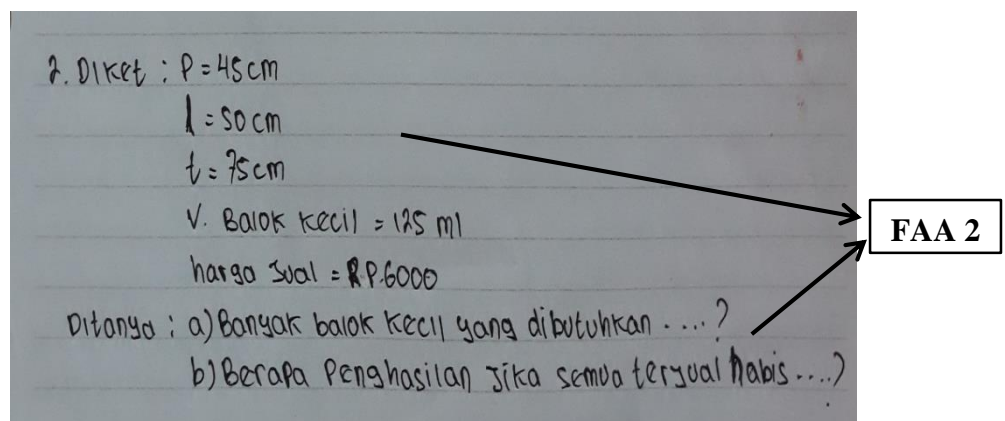 2. Diket : P = 45 cm
l = 50 cm
t = 75 cm
V. Balok kecil = 125 ml
harga Jual = RP.6000
Ditanya : a) Banyak balok kecil yang dibutuhkan ....?
b) Berapa Penghasilan Jika semua terjual habis ....?
FAA 2